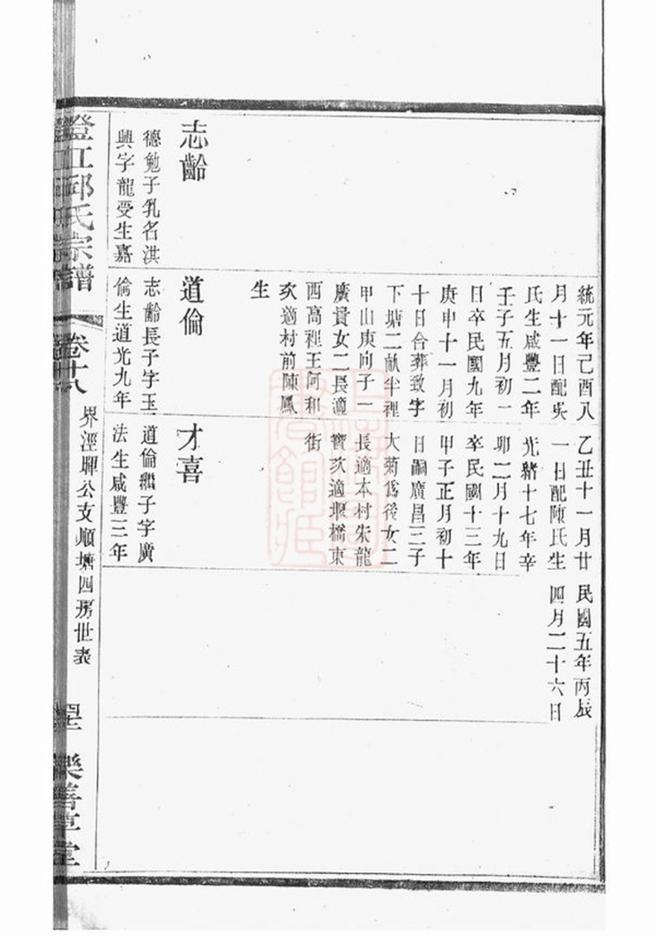 統元年己酉八
月十一日配吳
氏生咸豐二年
壬子五月初一
日卒民國九年
庚申十一月初
十日合葬致字
下塘二畝半裡
甲山庚向子一
廣貴女二長適
西高裡王阿和
次適村前陳鳳
生
乙丑十一月廿
一日配陳氏生
光緒十七年辛
卯二月十九日
卒民國十三年
甲子正月初十
日嗣廣昌三子
大菊爲後女二
長適本村朱龍
寶次適堰橋東
街
民國五年丙辰
四月二十六日
志齡
德勉子乳名淇
興字龍受生嘉
道倫
志齡長子字玉
倫生道光九年
才喜
道倫繼子字廣
法生咸豐三年
界涇暉公支順塘四房世表
澄江邱氏宗譜
卷十八
樂善草堂